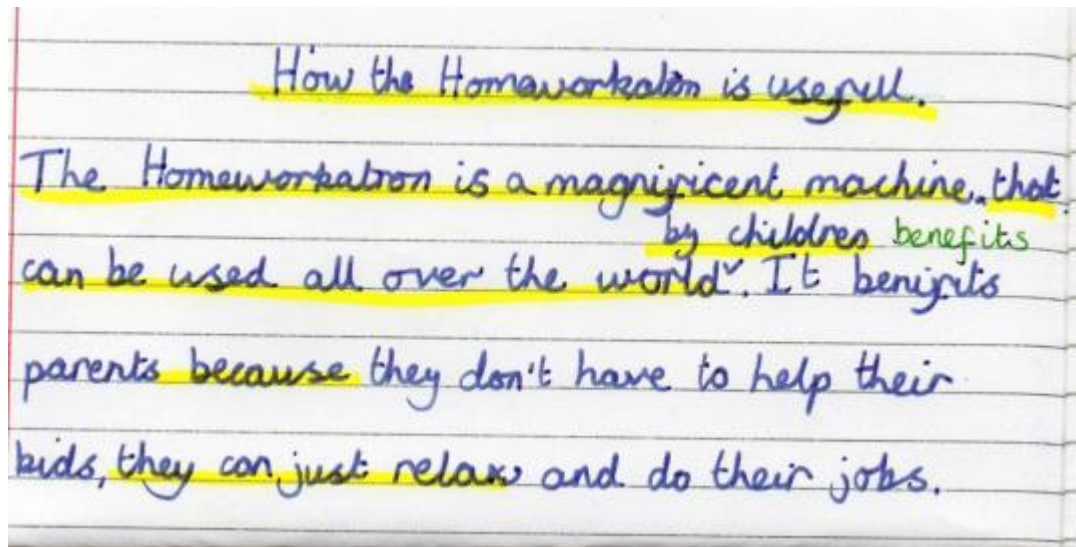 How the Homeworkatron is usefull.
The Homeworkatron is a magnificent machine, that
by children benefits
can be used all over the world. It benifits
parents because they don't have to help their
kids, they can just relax and do their jobs.